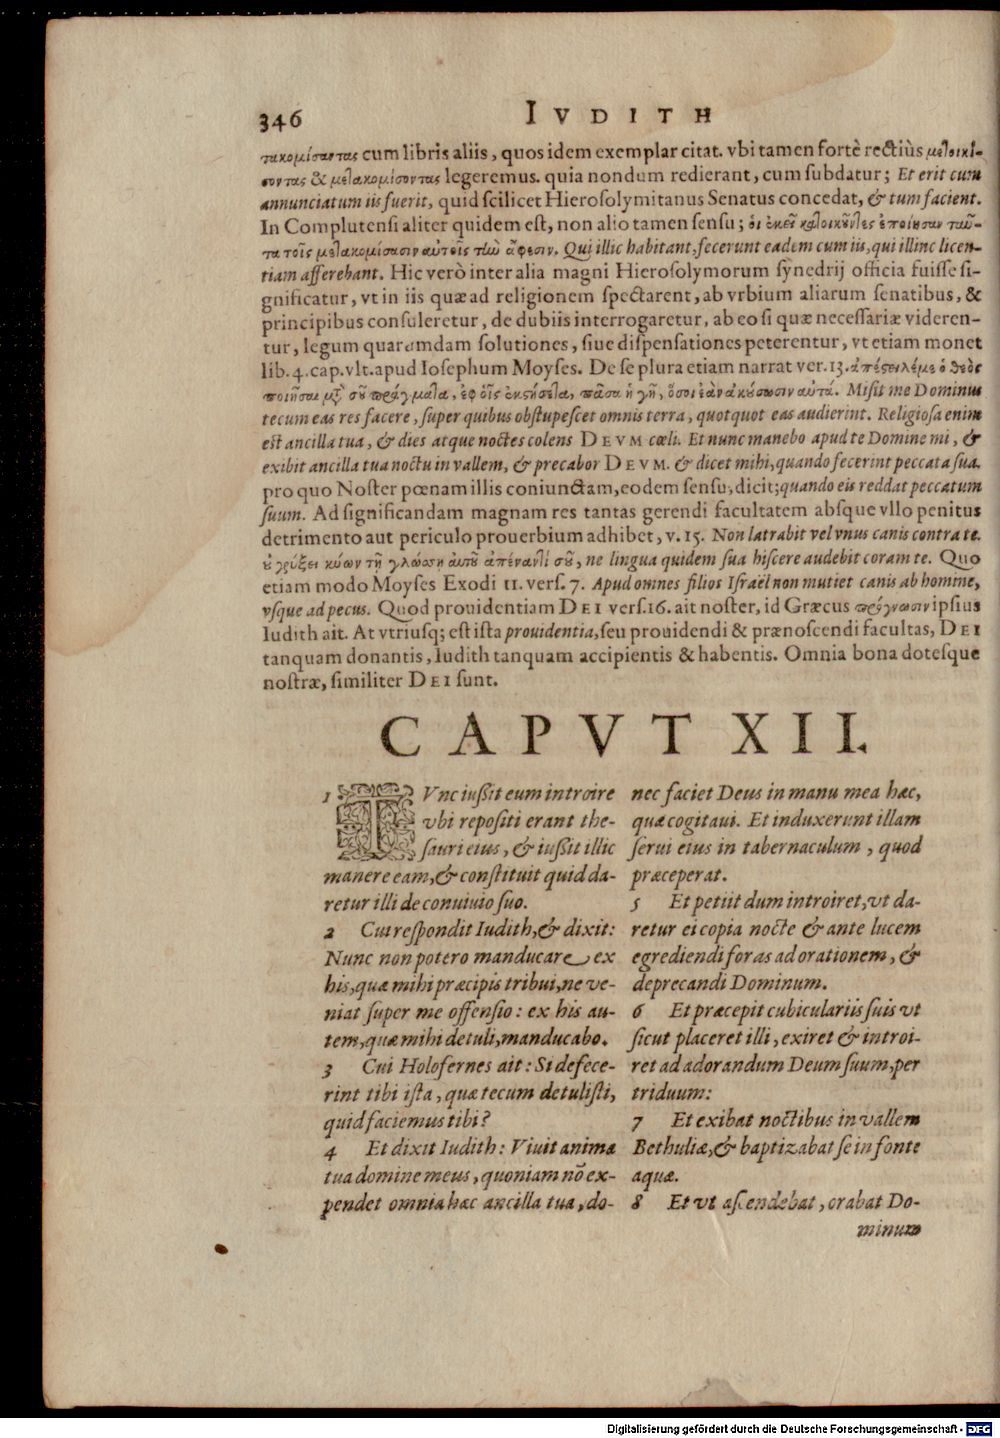 346
IVDITH
τακομίσαντας cum libris aliis, quos idem exemplar citat. vbi tamen fortè rectiùs μετοικί-
σοντας & μετακομίσοντας legeremus. quia nondum redierant, cum subdatur; Et erit cum
annunciatum iis fuerit, quid scilicet Hierosolymitanus Senatus concedat, & tum facient.
In Complutensi aliter quidem est, non alio tamen sensu; οἱ ἐκεῖ κατοικοῦντες ἐποίησαν ταῦ-
τα τοῖς μετακομίσασιν αὐτοῖς τὴν ἄφεσιν. Qui illic habitant, fecerunt eadem cum iis, qui illinc licen-
tiam afferebant. Hic verò inter alia magni Hierosolymorum synedrij officia fuisse si-
gnificatur, vt in iis quæ ad religionem spectarent, ab vrbium aliarum senatibus, &
principibus consuleretur, de dubiis interrogaretur, ab eo si quæ necessariæ videren-
tur, legum quarumdam solutiones, siue dispensationes peterentur, vt etiam monet
lib. 4. cap. vlt. apud Iosephum Moyses. De se plura etiam narrat ver. 13. ἀπέστειλέ με ὁ θεὸς
ποιῆσαι μετὰ σοῦ πράγματα, ἐφ οἷς ἐκστήσεται πᾶσα ἡ γῆ, ὅσοι ἐὰν ἀκούσωσιν αὐτά. Misit me Dominus
tecum eas res facere, super quibus obstupescet omnis terra, quotquot eas audierint. Religiosa enim
est ancilla tua, & dies atque noctes colens DEVM cœli. Et nunc manebo apud te Domine mi, &
exibit ancilla tua noctu in vallem, & precabor DEVM. & dicet mihi, quando fecerint peccata sua.
pro quo Noster pœnam illis coniunctam, eodem sensu, dicit; quando eis reddat peccatum
suum. Ad significandam magnam res tantas gerendi facultatem absque vllo penitus
detrimento aut periculo prouerbium adhibet, v. 15. Non latrabit vel vnus canis contra te.
οὐ γρύξει κύων τῇ γλώσσῃ αὐτοῦ ἀπέναντί σου, ne lingua quidem sua hiscere audebit coram te. Quo
etiam modo Moyses Exodi 11. vers. 7. Apud omnes filios Israël non mutiet canis ab homine,
vsque ad pecus. Quod prouidentiam DEI vers. 16. ait noster, id Græcus πρόγνωσιν ipsius
Iudith ait. At vtriusq; est ista prouidentia, seu prouidendi & prænoscendi facultas, DEI
tanquam donantis, Iudith tanquam accipientis & habentis. Omnia bona dotesque
nostræ, similiter DEI sunt.
CAPVT XII.
1 TVnc iussit eum introire
vbi repositi erant the-
sauri eius, & iussit illic
manere eam, & constituit quid da-
retur illi de conuiuio suo.
2 Cui respondit Iudith, & dixit:
Nunc non potero manducare ex
his, quæ mihi præcipis tribui, ne ve-
niat super me offensio: ex his au-
tem, quæ mihi detuli, manducabo.
3 Cui Holofernes ait: Si defece-
rint tibi ista, quæ tecum detulisti,
quid faciemus tibi?
4 Et dixit Iudith: Viuit anima
tua domine meus, quoniam nō ex-
pendet omnia hæc ancilla tua, do-
nec faciet Deus in manu mea hæc,
quæ cogitaui. Et induxerunt illam
serui eius in tabernaculum, quod
præceperat.
5 Et petiit dum introiret, vt da-
retur ei copia nocte & ante lucem
egrediendi foras ad orationem, &
deprecandi Dominum.
6 Et præcepit cubiculariis suis vt
sicut placeret illi, exiret & introi-
ret ad adorandum Deum suum, per
triduum:
7 Et exibat noctibus in vallem
Bethuliæ, & baptizabat se in fonte
aquæ.
8 Et vt ascendebat, orabat Do-
minum
Digitalisierung gefördert durch die Deutsche Forschungsgemeinschaft - DFG